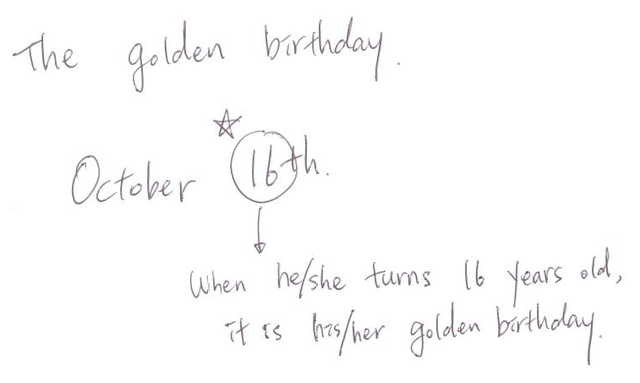 The golden birthday.
October 16th.
When he/she turns 16 years old,
it is his/her golden birthday.